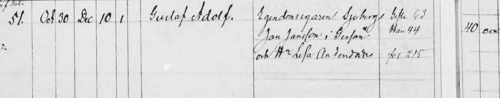 51. Oct 30 Dec 10 1 Gustaf Adolf. Egendomsegaren Sjöberg 63
Jan Jansson i Han 44 40
och Hu Lisa Andersdotter fol 215